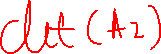 det (A2)